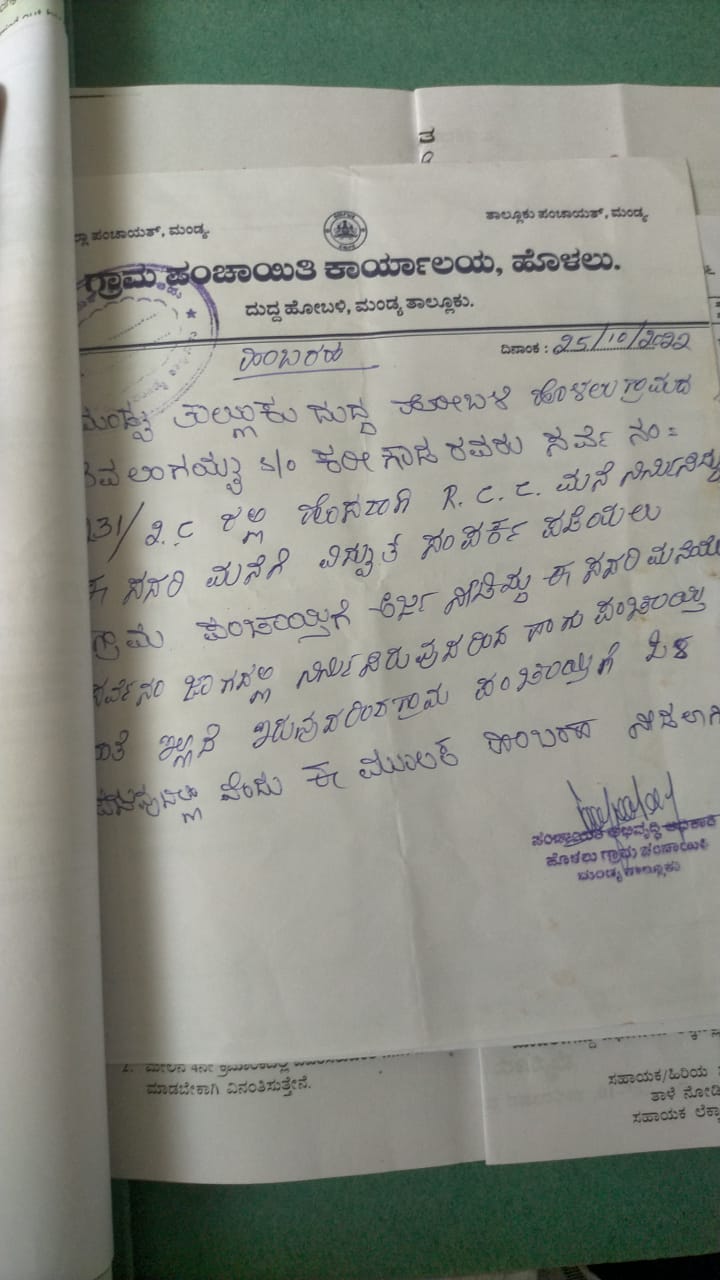 ತ
ಲ್ಲಾ ಪಂಚಾಯತ್, ಮಂಡ್ಯ.
ತಾಲ್ಲೂಕು ಪಂಚಾಯತ್, ಮಂಡ್ಯ.
ಗ್ರಾಮ ಪಂಚಾಯಿತಿ ಕಾರ್ಯಾಲಯ, ಹೊಳಲು.
ದುದ್ದ ಹೋಬಳಿ, ಮಂಡ್ಯ ತಾಲ್ಲೂಕು.
ಹಿಂಬರಹ
ದಿನಾಂಕ : 25/10/2022
ಮಂಡ್ಯ ತಾಲ್ಲೂಕು ದುದ್ದ ಹೋಬಳಿ ಹೊಳಲು ಗ್ರಾಮದ
ಶಿವಲಿಂಗಯ್ಯ s/o ಕರೀಗೌಡ ರವರು ಸರ್ವೆ ನಂ:
131/2.C ರಲ್ಲಿ ಹೊಸದಾಗಿ R.C.C. ಮನೆ ನಿರ್ಮಿಸಿದ್ದು
ಈ ಸದರಿ ಮನೆಗೆ ವಿದ್ಯುತ್ ಸಂಪರ್ಕ ಪಡೆಯಲು
ಗ್ರಾಮ ಪಂಚಾಯ್ತಿಗೆ ಅರ್ಜಿ ಸಲ್ಲಿಸಿದ್ದು ಈ ಸದರಿ ಮನೆಯು
ಸರ್ವೆ ನಂ ಜಾಗದಲ್ಲಿ ನಿರ್ಮಿಸಿರುವುದರಿಂದ ಹಾಗು ಪಂಚಾಯ್ತಿ
ಖಾತೆ ಇಲ್ಲದೆ ಇರುವುದರಿಂದ ಗ್ರಾಮ ಪಂಚಾಯ್ತಿಗೆ
ಬರುವುದಿಲ್ಲ ವೆಂದು ಈ ಮೂಲಕ ಹಿಂಬರಹ ನೀಡಲಾಗಿ
ಪಂಚಾಯಿತಿ ಅಭಿವೃದ್ಧಿ ಅಧಿಕಾರಿ
ಹೊಳಲು ಗ್ರಾಮ ಪಂಚಾಯಿತಿ
ಮಂಡ್ಯ ತಾಲ್ಲೂಕು
2. ಮೇಲಿನ 4ನೇ
ಮಾಡಬೇಕಾಗಿ ವಿನಂತಿಸುತ್ತೇನೆ.
ಸಹಾಯಕ/ಹಿರಿಯ
ತಾಳೆ ನೋಡಿ
ಸಹಾಯಕ ಲೆಕ್ಕಾ